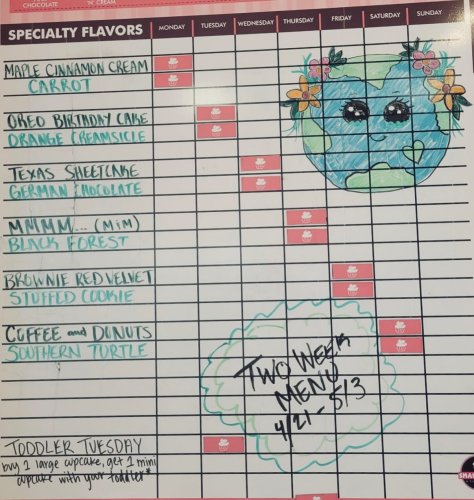 CHOCOLATE 'N' CREAM
SPECIALTY FLAVORS MONDAY TUESDAY WEDNESDAY THURSDAY FRIDAY SATURDAY SUNDAY
MAPLE CINNAMON CREAM
CARROT
OREO BIRTHDAY CAKE
ORANGE CREAMSICLE
TEXAS SHEETCAKE
GERMAN CHOCOLATE
MMMM... (MiM)
BLACK FOREST
BROWNIE RED VELVET
STUFFED COOKIE
COFFEE and DONUTS
SOUTHERN TURTLE
TWO WEEK
MENU
4/21 - 5/3
TODDLER TUESDAY
buy 1 large cupcake, get 1 mini
cupcake with your toddler*